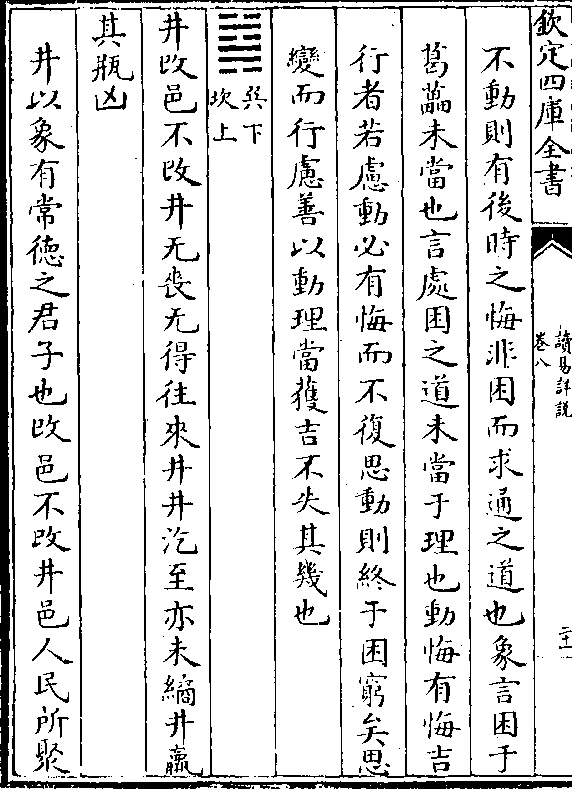 欽定四庫全書
讀易詳說
卷八
二十一
不動則有後時之悔非困而求通之道也象言困于
葛藟未當也言處困之道未當于理也動悔有悔吉
行者若慮動必有悔而不復思動則終于困窮矣思
變而行慮善以動理當獲吉不失其幾也
䷯巽下
坎上
井改邑不改井无喪无得往來井井汔至亦未繘井羸
其瓶凶
井以象有常德之君子也改邑不改井邑人民所聚